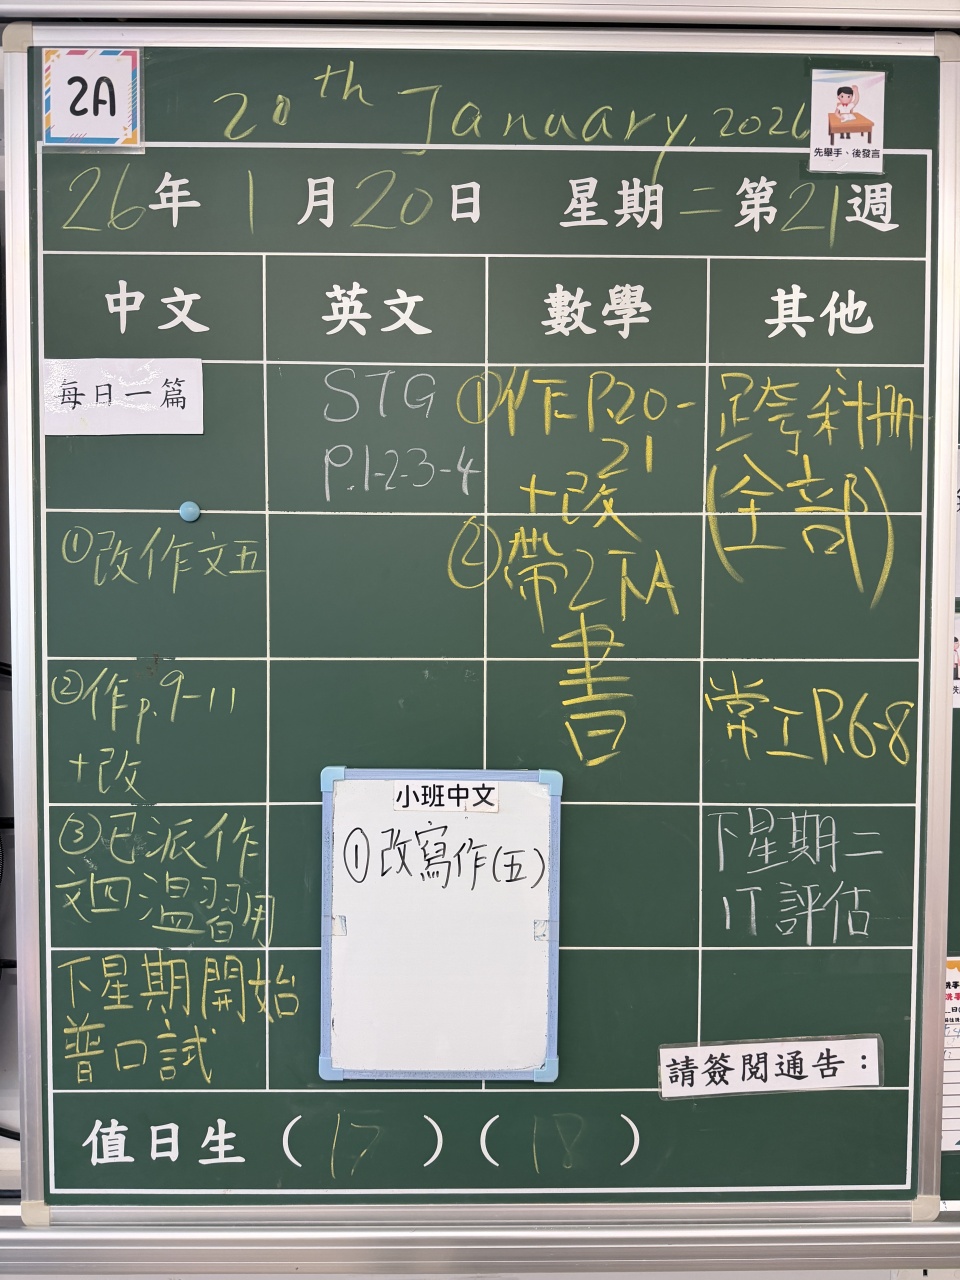 2A
20th January, 2026
先舉手、後發言
26年 1月20日 星期二 第21週
中文 英文 數學 其他
每日一篇
①改作文五
②作p.9-11
+改
③已派作
文四溫習用
下星期開始
普口試
STG
P.1-2-3-4
①作P.20-
21
+改
②帶2下A
書
跨科冊
(全部)
常工P.6-8
下星期二
IT評估
小班中文
①改寫作(五)
請簽閱通告：
值日生（17）（18）